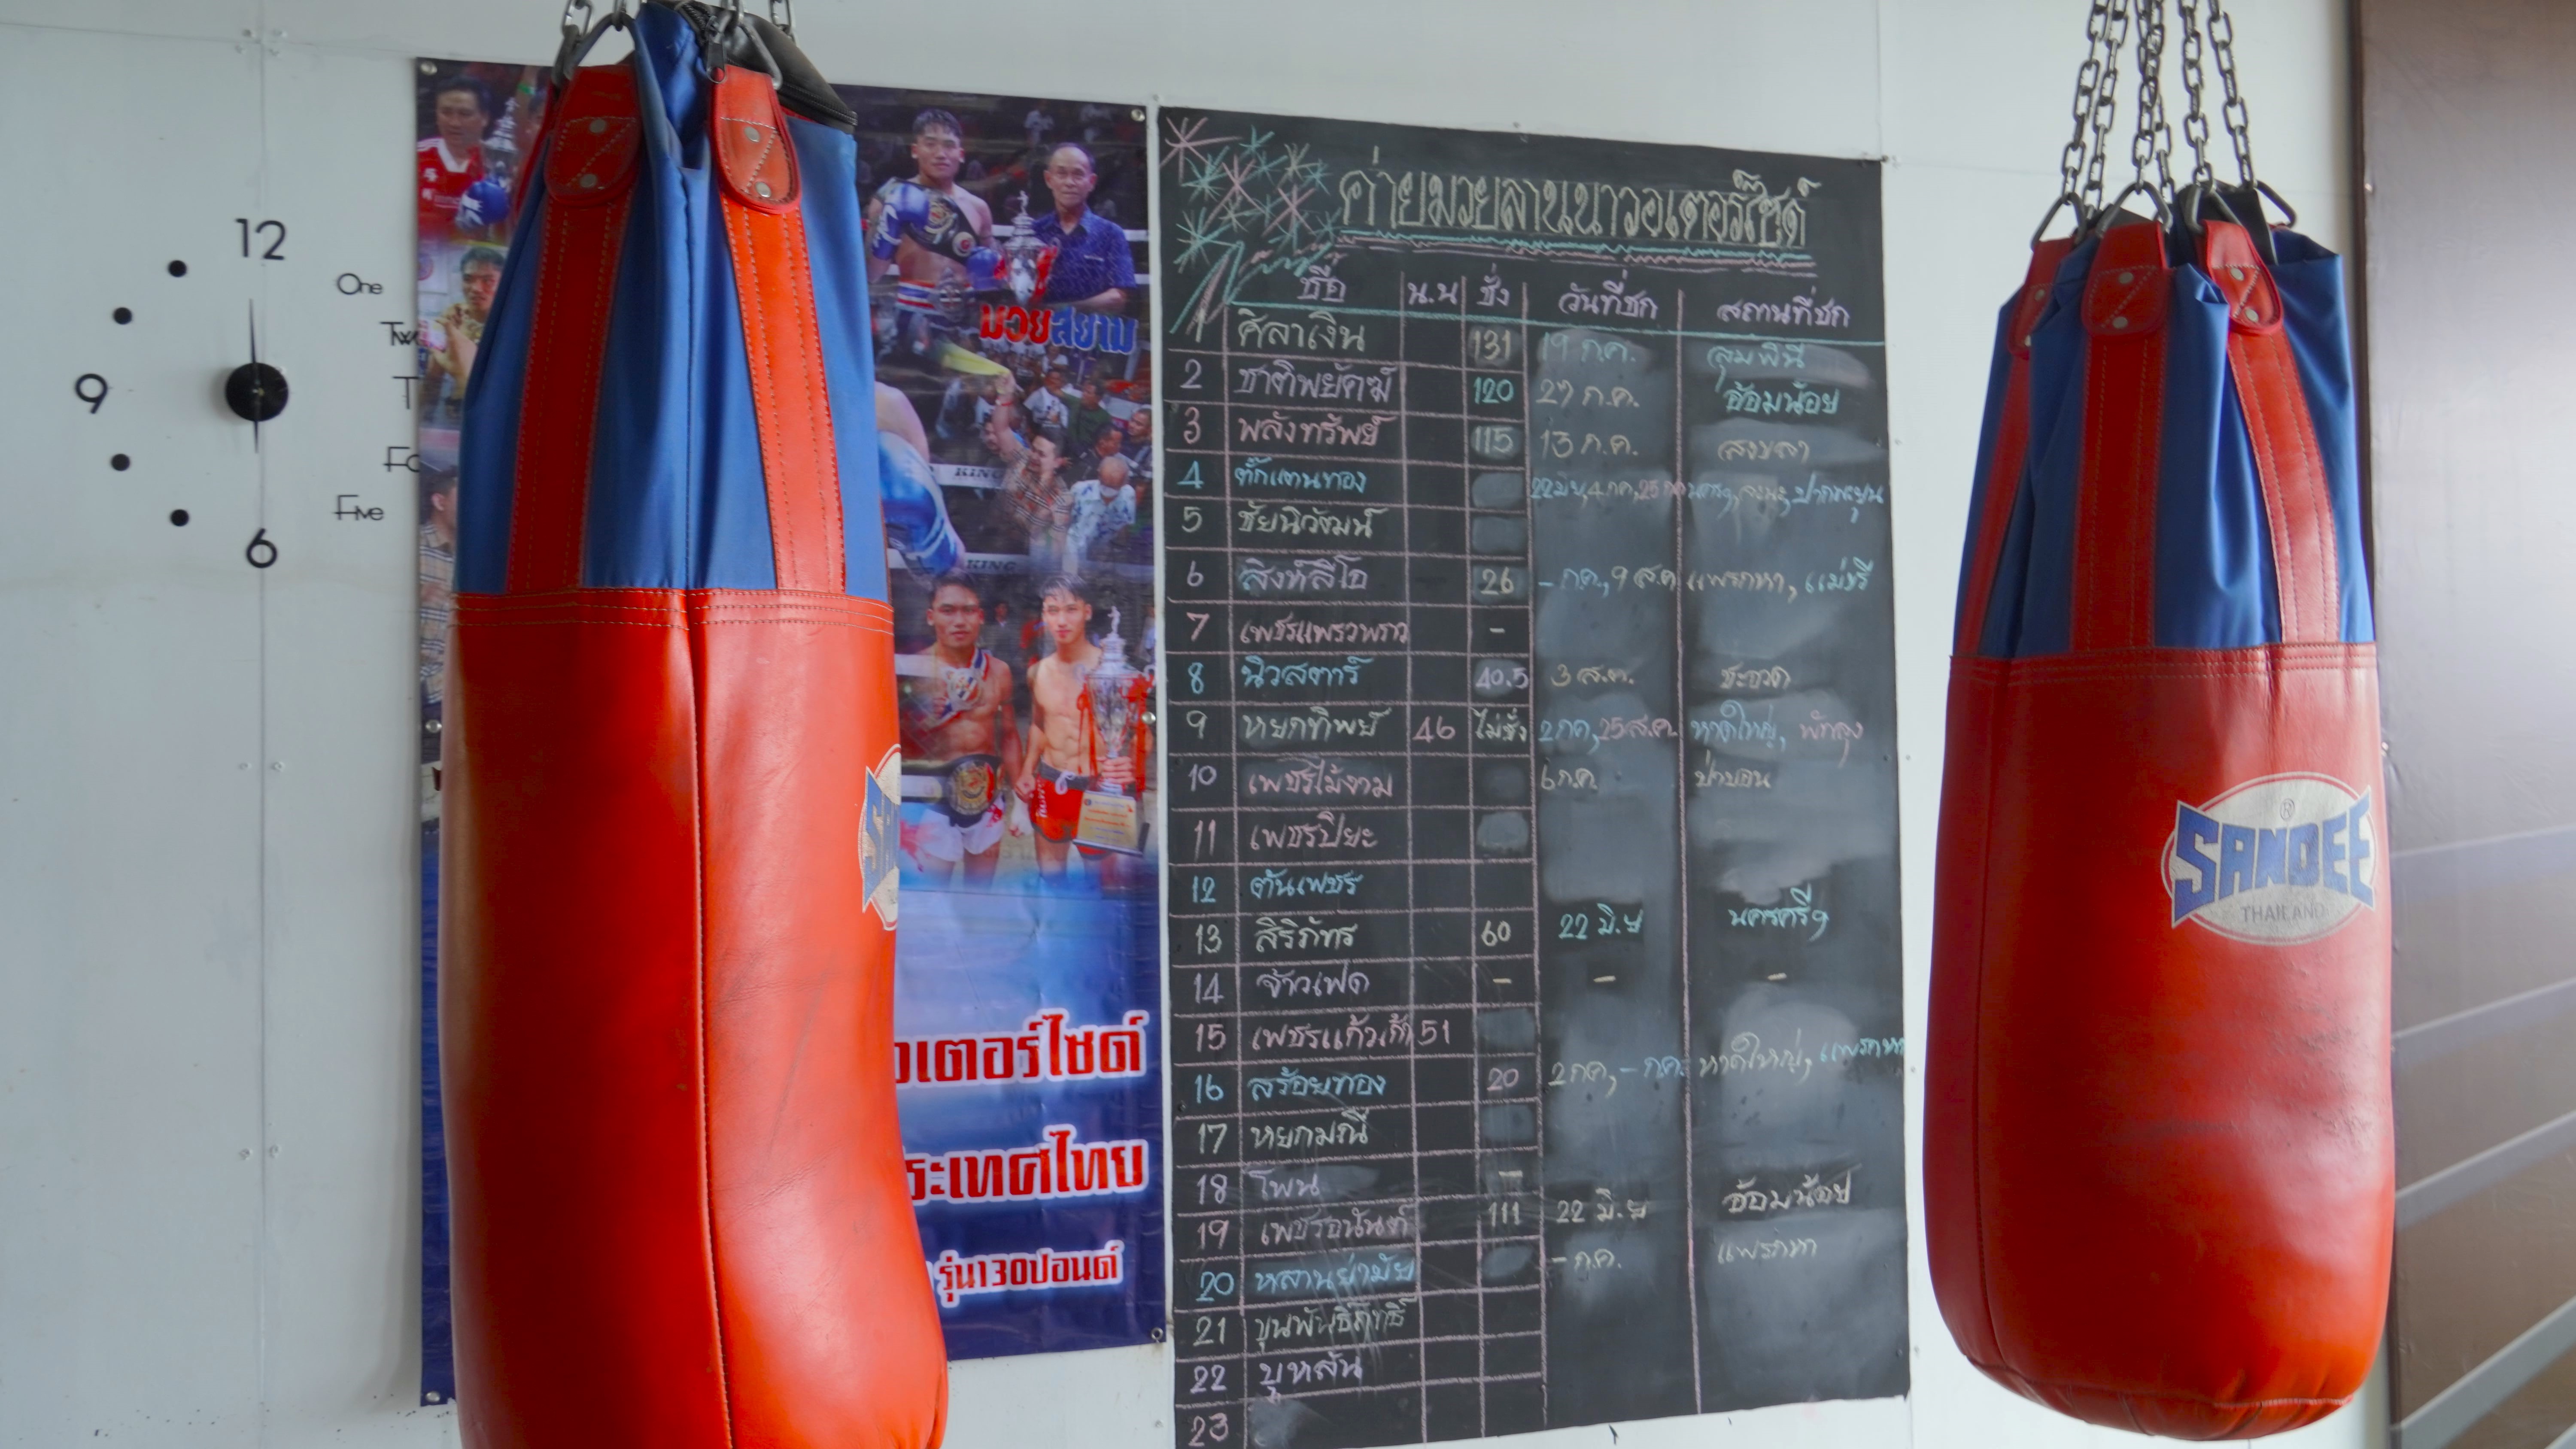 12
One
9
Five
6
มวยสยาม
อเตอร์ไซด์
ระเทศไทย
รุ่น130ปอนด์
KING
ค่ายมวยลานนาวอเตอร์ไซด์
ชื่อ น.น ชั่ง วันที่ชก สถานที่ชก
1 ศิลาเงิน 131 19 ก.ค. ลุมพินี
2 ชาติพยัคฆ์ 120 27 ก.ค. อ้อมน้อย
3 พลังทรัพย์ 115 13 ก.ค. สงขลา
4 ตั๊กแตนทอง 22 มิ.ย, 4 ก.ค, 25
5
6 สิงห์ลีโอ 26 - ก.ค, 9 ส.ค แพรกหา,
7 เพชรแพรวพราว -
8 นิวสตาร์ 40.5 3 ส.ค. ชะอวด
9 หยกทิพย์ 46 ไม่ชั่ง 2 ก.ค, 25 ส.ค. หาดใหญ่, พัทลุง
10 เพชรไม้งาม 6 ก.ค. ป่าบอน
11 เพชรปิยะ
12 ต้นเพชร
13 สิริภัทร 60 22 มิ.ย นครศรีฯ
14 จ้าวเฟด - - -
15 เพชรแก้วเก้า 51
16 สร้อยทอง 20 2 ก.ค, - ก.ค. หาดใหญ่, แพรกหา
17 หยกมณี
18 โพน -
19 เพชรอนันต์ 111 22 มิ.ย อ้อมน้อย
20 หลานย่ามัย - ก.ค. แพรกหา
21
22 บุหลัน
23
SANDEE
THAILAND